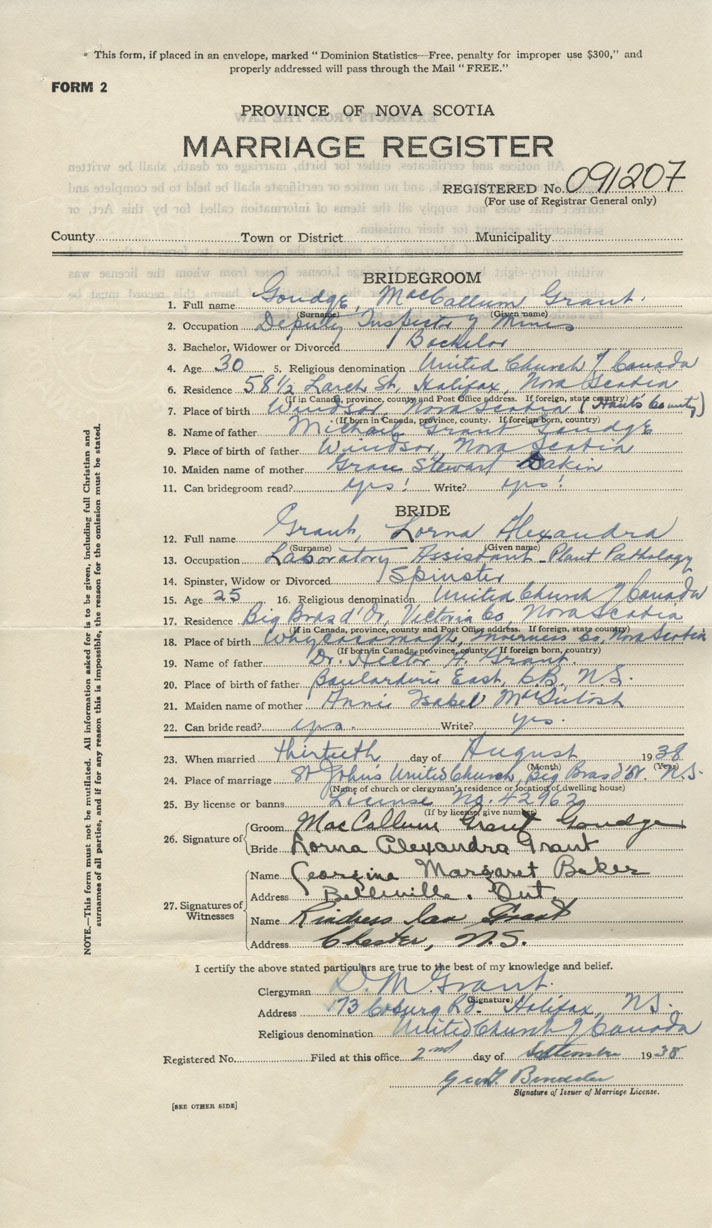 * This form, if placed in an envelope, marked "Dominion Statistics—Free, penalty for improper use $300," and
properly addressed will pass through the Mail "FREE."
FORM 2
PROVINCE OF NOVA SCOTIA
MARRIAGE REGISTER
REGISTERED No. 091207
(For use of Registrar General only)
County Town or District Municipality
BRIDEGROOM
1. Full name Goudge, MacCallum Grant.
(Surname) (Given name)
2. Occupation Deputy Inspector of Mines
3. Bachelor, Widower or Divorced Bachelor
4. Age 30 5. Religious denomination United Church of Canada
6. Residence 58½ Larch St, Halifax, Nova Scotia
(If in Canada, province, county and Post Office address. If foreign, state country)
7. Place of birth Windsor, Nova Scotia (Hants County)
(If born in Canada, province, county. If foreign born, country)
8. Name of father Michael Grant Goudge
9. Place of birth of father Windsor, Nova Scotia
10. Maiden name of mother Grace Stewart Dakin
11. Can bridegroom read? yes! Write? yes!
BRIDE
12. Full name Grant, Lorna Alexandra
(Surname) (Given name)
13. Occupation Laboratory Assistant - Plant Pathology
14. Spinster, Widow or Divorced Spinster
15. Age 25 16. Religious denomination United Church of Canada
17. Residence Big Bras d'Or, Victoria Co, Nova Scotia
(If in Canada, province, county and Post Office address. If foreign, state country)
18. Place of birth Whycocomagh, Inverness Co, Nova Scotia
(If born in Canada, province, county. If foreign born, country)
19. Name of father Dr. Hector A. Grant.
20. Place of birth of father Boularderie East, C.B., N.S.
21. Maiden name of mother Annie Isabel MacIntosh
22. Can bride read? yes. Write? yes.
23. When married thirtieth day of August 1938
(Month) (Year)
24. Place of marriage St Johns United Church, Big Bras d'Or. N.S.
(Name of church or clergyman's residence or location of dwelling house)
25. By license or banns License No. 42962
(If by license, give number)
26. Signature of Groom MacCallum Grant Goudge
Bride Lorna Alexandra Grant
27. Signatures of Witnesses Name Georgina Margaret Baker
Address Belleville, Ont.
Name Ian Grant
Address Chester, N.S.
I certify the above stated particulars are true to the best of my knowledge and belief.
Clergyman D. M. Grant.
(Signature)
Address 173 Coburg Rd. Halifax, N.S.
Religious denomination United Church of Canada
Registered No. Filed at this office 2nd day of September 1938
Signature of Issuer of Marriage License.
[SEE OTHER SIDE]
NOTE.—This form must not be mutilated. All information asked for is to be given, including full Christian and
surnames of all parties, and if for any reason this is impossible, the reason for the omission must be stated.